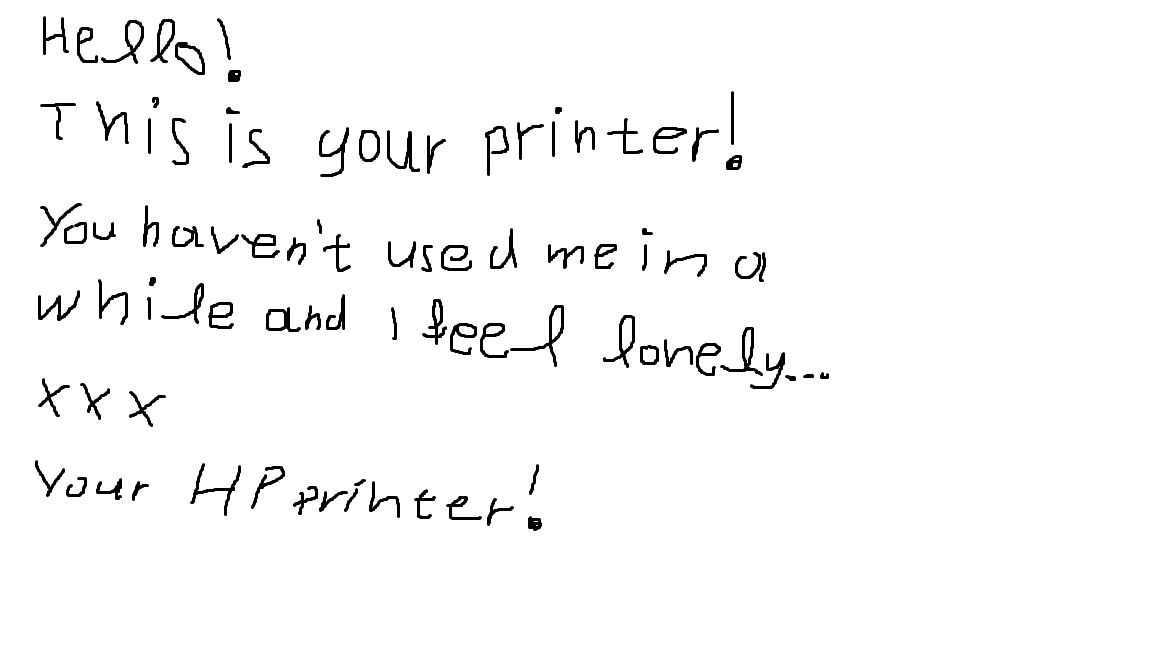 Hello!
This is your printer!
You haven't used me in a
while and I feel lonely...
xxx
Your HP printer!